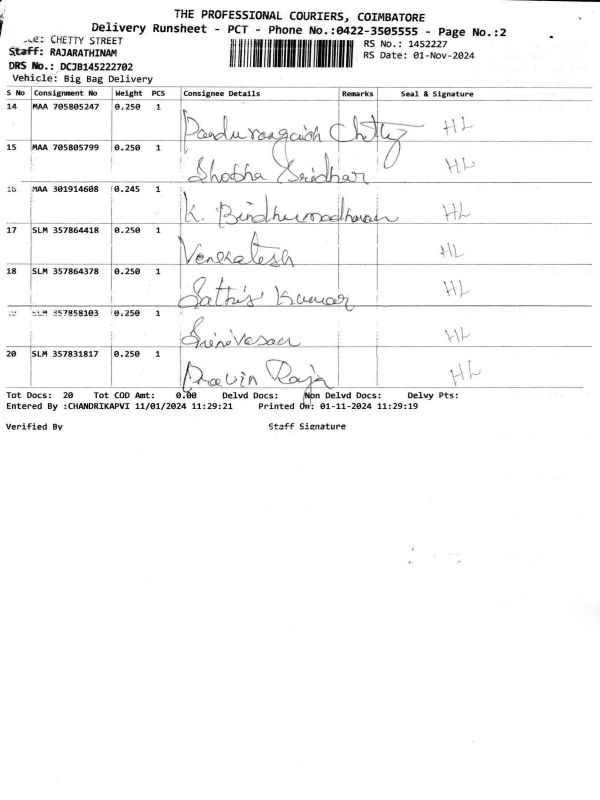 THE PROFESSIONAL COURIERS, COIMBATORE
Delivery Runsheet - PCT - Phone No.:0422-3505555 - Page No.:2
CHETTY STREET
RS No.: 1452227
Staff: RAJARATHINAM
RS Date: 01-Nov-2024
DRS No.: DCJB145222702
Vehicle: Big Bag Delivery
S No Consignment No Weight PCS Consignee Details Remarks Seal & Signature
14 MAA 705805247 0.250 1 Pandurangaiah Chetty HL
15 MAA 705805799 0.250 1 Shobha Sridhar HL
16 MAA 301914608 0.245 1 K. Bindhumadhavan HL
17 SLM 357864418 0.250 1 Venkatesh HL
18 SLM 357864378 0.250 1 Sathis Kumar HL
SLM 357858103 0.250 1 Srinivasan HL
20 SLM 357831817 0.250 1 Pravin Raja HL
Tot Docs: 20 Tot COD Amt: 0.00 Delvd Docs: Non Delvd Docs: Delvy Pts:
Entered By :CHANDRIKAPVI 11/01/2024 11:29:21 Printed On: 01-11-2024 11:29:19
Verified By Staff Signature